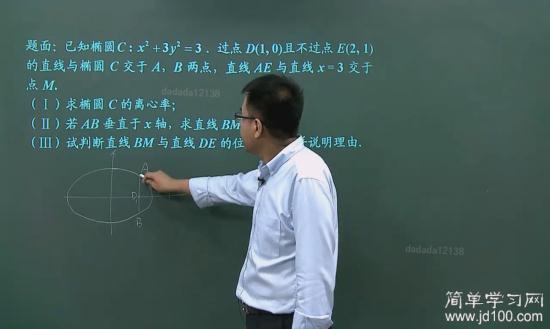 题面：已知椭圆C：x²+3y²=3．过点D(1,0)且不过点E(2,1)
的直线与椭圆C交于A，B两点，直线AE与直线x=3交于
点M．
dadada12138
（Ⅰ）求椭圆C的离心率；
（Ⅱ）若AB垂直于x轴，求直线BM
（Ⅲ）试判断直线BM与直线DE的位 说明理由．
A
D
B
dadada12138
简单学习网
www.jd100.com